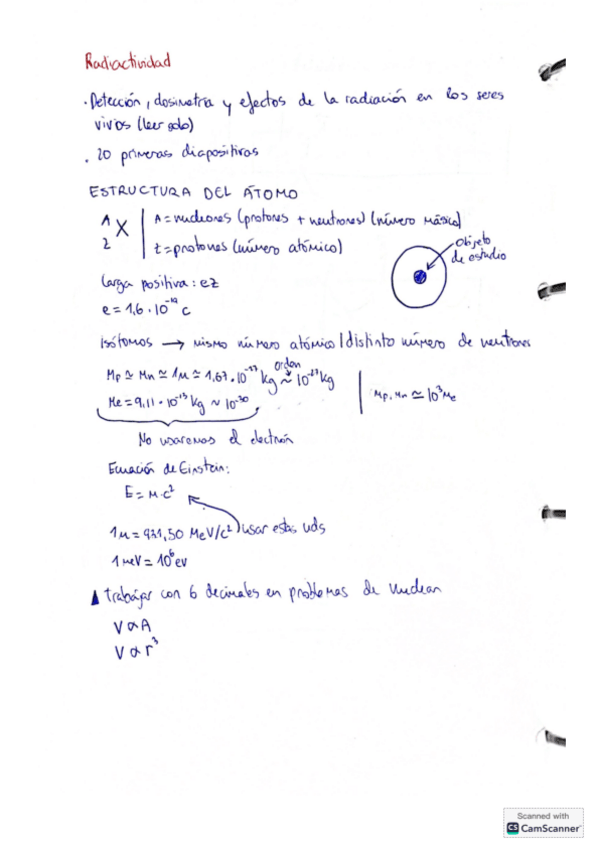 Radiactividad
· Detección, dosimetría y efectos de la radiación en los seres
vivos (leer solo)
. 20 primeras diapositivas
ESTRUCTURA DEL ÁTOMO
A
Z X
A = nucleones (protones + neutrones) (número másico)
Z = protones (número atómico)
objeto
de estudio
Carga positiva : eZ
e = 1,6 · 10⁻¹⁹ C
Isótomos → mismo número atómico / distinto número de neutrones
orden
Mp ≃ Mn ≃ 1u ≃ 1,67 · 10⁻²⁷ kg ~ 10⁻²⁷ kg
Mp, Mn ≃ 10³ Me
Me = 9,11 · 10⁻¹³ kg ~ 10⁻³⁰
No usaremos el electrón
Ecuación de Einstein:
E = M · c²
1u = 931,50 MeV/c² usar estas uds
1 MeV = 10⁶ eV
▲ trabajar con 6 decimales en problemas de nuclear
V ∝ A
V ∝ r³
Scanned with
CS CamScanner